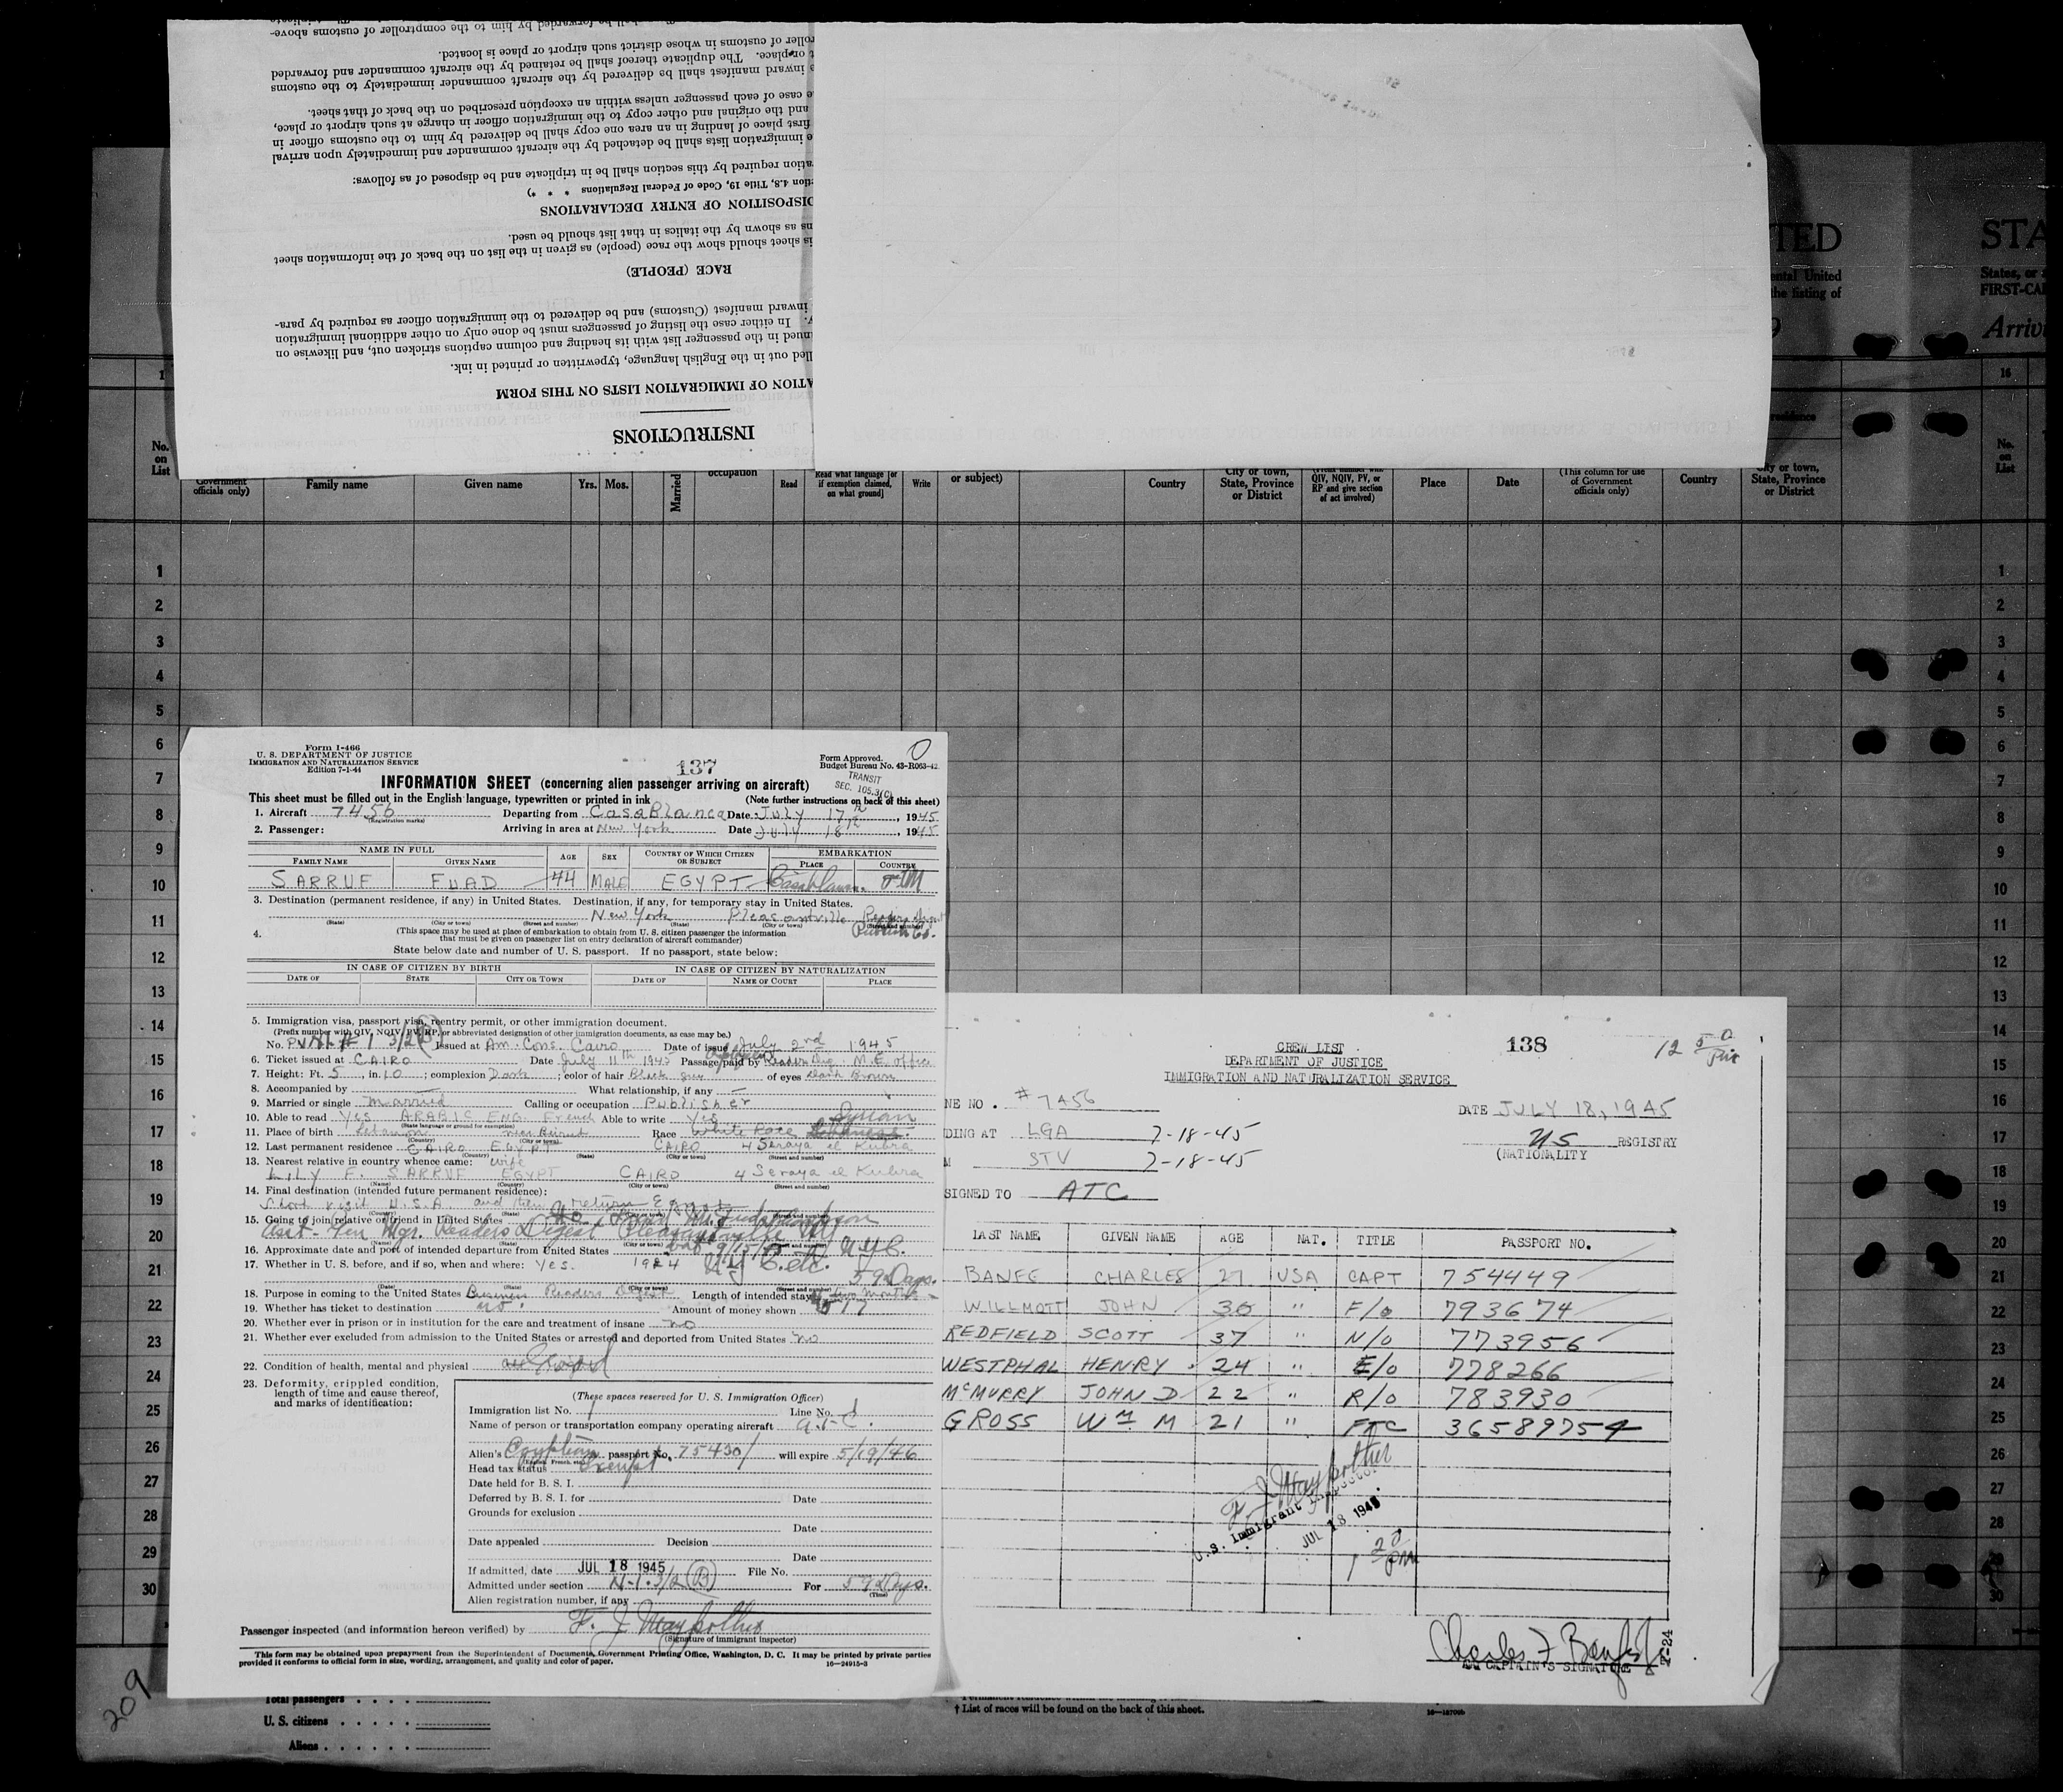 roller of customs in whose district such airport or place is located.
t or place. The duplicate thereof shall be retained by the aircraft commander and forwarded
e inward manifest shall be delivered by the aircraft commander immediately to the customs
e case of each passenger unless within an exception prescribed on the back of that sheet.
and the original and other copy to the immigration officer in charge at such airport or place,
first place of landing in an area one copy shall be delivered by him to the customs officer in
e immigration lists shall be detached by the aircraft commander and immediately upon arrival
ation required by this section shall be in triplicate and be disposed of as follows:
tion 4.8, Title 19, Code of Federal Regulations * * *)
DISPOSITION OF ENTRY DECLARATIONS
ns as shown by the italics in that list should be used.
is sheet should show the race (people) as given in the list on the back of the information sheet
RACE (PEOPLE)
inward manifest (Customs) and be delivered to the immigration officer as required by para-
y. In either case the listing of passengers must be done only on other additional immigration
nued in the passenger list with its heading and column captions stricken out, and likewise on
lled out in the English language, typewritten or printed in ink.
ATION OF IMMIGRATION LISTS ON THIS FORM
INSTRUCTIONS
TED STA
ental United States, or
the listing of FIRST-CA
9 Arriv
1 16
No. on List
Government officials only) Family name Given name Yrs. Mos. Married occupation Read Read what language [or if exemption claimed, on what ground] Write or subject) Country City or town, State, Province or District QIV, NQIV, PV, or RP and give section of act involved) Place Date (This column for use of Government officials only) Country City or town, State, Province or District No. on List
1 1
2 2
3 3
4 4
5 5
6 6
7 7
8 8
9 9
10 10
11 11
12 12
13 13
14 14
15 15
16 16
17 17
18 18
19 19
20 20
21 21
22 22
23 23
24 24
25 25
26 26
27 27
28 28
29 29
30 30
Form I-466
U. S. DEPARTMENT OF JUSTICE
IMMIGRATION AND NATURALIZATION SERVICE
Edition 7-1-44
137
Form Approved.
Budget Bureau No. 43-R063-42.
TRANSIT
SEC. 105.3(C)
INFORMATION SHEET (concerning alien passenger arriving on aircraft)
This sheet must be filled out in the English language, typewritten or printed in ink (Note further instructions on back of this sheet)
1. Aircraft 7456 (Registration marks) Departing from CasaBlanca Date July 17th, 1945
2. Passenger: Arriving in area at New York Date July 18th, 1945
NAME IN FULL AGE SEX COUNTRY OF WHICH CITIZEN OR SUBJECT EMBARKATION
FAMILY NAME GIVEN NAME PLACE COUNTRY
SARRUF FUAD 44 MALE EGYPT Casablanca
3. Destination (permanent residence, if any) in United States. Destination, if any, for temporary stay in United States.
New York Pleasantville Readers Digest
(State) (City or town) (Street and number) (State) (City or town) (Street and number)
4. (This space may be used at place of embarkation to obtain from U. S. citizen passenger the information
that must be given on passenger list on entry declaration of aircraft commander)
State below date and number of U. S. passport. If no passport, state below:
IN CASE OF CITIZEN BY BIRTH IN CASE OF CITIZEN BY NATURALIZATION
DATE OF STATE CITY OR TOWN DATE OF NAME OF COURT PLACE
5. Immigration visa, passport visa, reentry permit, or other immigration document.
(Prefix number with QIV, NQIV, PV, RP, or abbreviated designation of other immigration documents, as case may be.)
No. PV Issued at Am. Cons. Cairo Date of issue July 2nd 1945
6. Ticket issued at CAIRO Date July 11th 1945 Passage paid by Readers Dig. M.E. office
7. Height: Ft. 5, in. 10; complexion Dark; color of hair Black grey of eyes Dark Brown
8. Accompanied by — What relationship, if any —
9. Married or single Married Calling or occupation Publisher
10. Able to read Yes ARABIC ENG. French Able to write Yes Syrian
(State language or ground for exemption)
11. Place of birth Lebanon near Beirut Race White Race
(Country) (City or town)
12. Last permanent residence CAIRO EGYPT CAIRO 4 Seraya el Kubra
(Country) (State) (City or town) (Street and number)
13. Nearest relative in country whence came: wife
LILY F. SARRUF EGYPT CAIRO 4 Seraya el Kubra
(Name) (City or town) (Street and number)
14. Final destination (intended future permanent residence):
Short visit U.S.A. and then return Egypt
15. Going to join relative or friend in United States
Asst. Gen Mgr. Readers Digest Pleasantville NY
16. Approximate date and port of intended departure from United States 9/15/45 N.Y.C.
17. Whether in U. S. before, and if so, when and where: Yes. 1924 N.Y.C. etc.
59 Days.
18. Purpose in coming to the United States Business Readers Digest Length of intended stay two months
19. Whether has ticket to destination Amount of money shown
20. Whether ever in prison or in institution for the care and treatment of insane no
21. Whether ever excluded from admission to the United States or arrested and deported from United States no
22. Condition of health, mental and physical Good
23. Deformity, crippled condition,
length of time and cause thereof,
and marks of identification:
(These spaces reserved for U. S. Immigration Officer)
Immigration list No. 1 Line No. 1
Name of person or transportation company operating aircraft A.T.C.
Alien's Egyptian passport No. 75430/ will expire 5/19/46
(English, French, etc.)
Head tax status Exempt
Date held for B. S. I.
Deferred by B. S. I. for Date
Grounds for exclusion
Date
Date appealed Decision
Date
If admitted, date JUL 18 1945 File No.
Admitted under section 3/2 (B) For 59 Days.
(Time)
Alien registration number, if any
Passenger inspected (and information hereon verified) by F. J. Maypother
(Signature of immigrant inspector)
This form may be obtained upon prepayment from the Superintendent of Documents, Government Printing Office, Washington, D. C. It may be printed by private parties
provided it conforms to official form in size, wording, arrangement, and quality and color of paper. 16—24915-3
138
12 50 PM
CREW LIST
DEPARTMENT OF JUSTICE
IMMIGRATION AND NATURALIZATION SERVICE
NE NO. #7456 DATE JULY 18, 1945
DING AT LGA 7-18-45 US REGISTRY
M STV 7-18-45 (NATIONALITY
SIGNED TO ATC
LAST NAME GIVEN NAME AGE NAT. TITLE PASSPORT NO.
BANFE CHARLES 27 USA CAPT 754449
WILLMOTT JOHN 30 " F/O 793674
REDFIELD SCOTT 37 " N/O 773956
WESTPHAL HENRY 24 " E/O 778266
McMURRY JOHN D 22 " R/O 783930
GROSS Wm M 21 " FTC 36589754
F. J. Maypother
U. S. Immigrant Inspector
JUL 18 1945
1 20 PM
Charles F Banfe
CAPTAIN'S SIGNATURE
T-24
209
Total passengers . . . .
U. S. citizens . . . . .
Aliens . . . . . .
† List of races will be found on the back of this sheet.